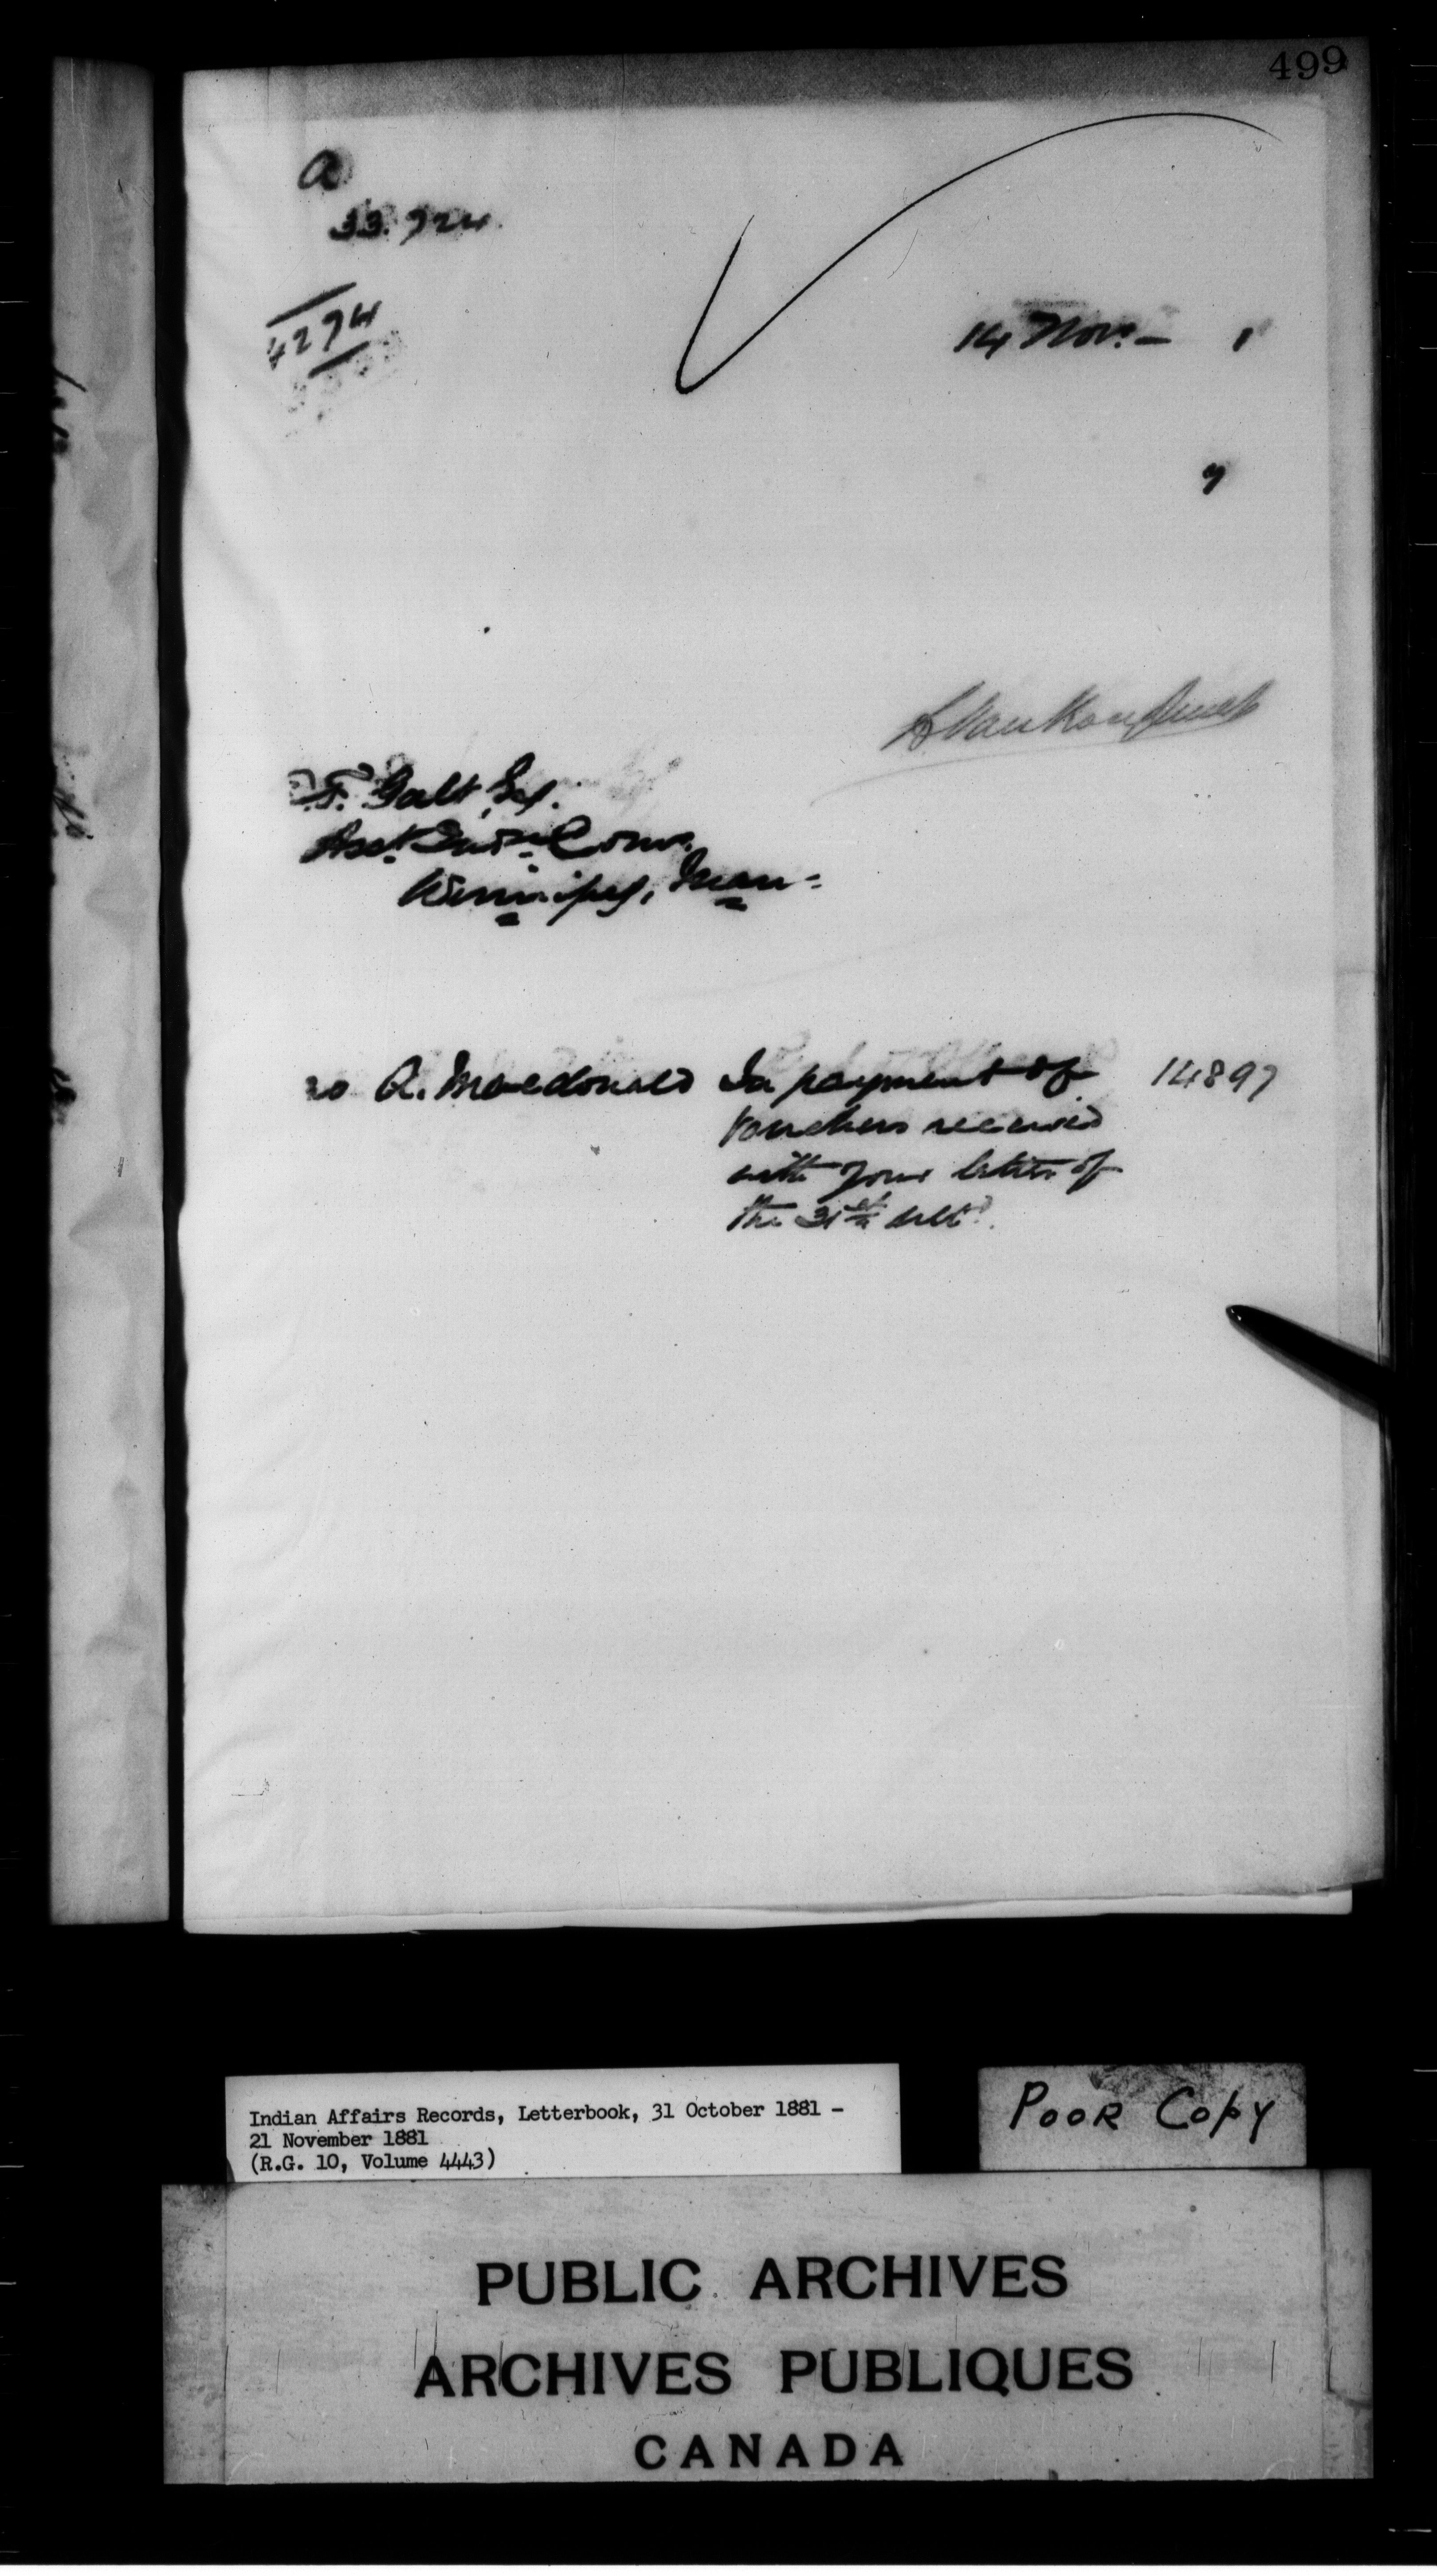 499
a
33.924.
4274
14 Nov: – 1
y
L VanKoughnet
E. T. Galt, Esq.
Asst. Indn. Comr.
Winnipeg, Man:
20 A. Macdonald In payment of 14897
vouchers received
with your letter of
the 31st ulto.
Indian Affairs Records, Letterbook, 31 October 1881 -
21 November 1881
(R.G. 10, Volume 4443)
POOR COPY
PUBLIC ARCHIVES
ARCHIVES PUBLIQUES
CANADA